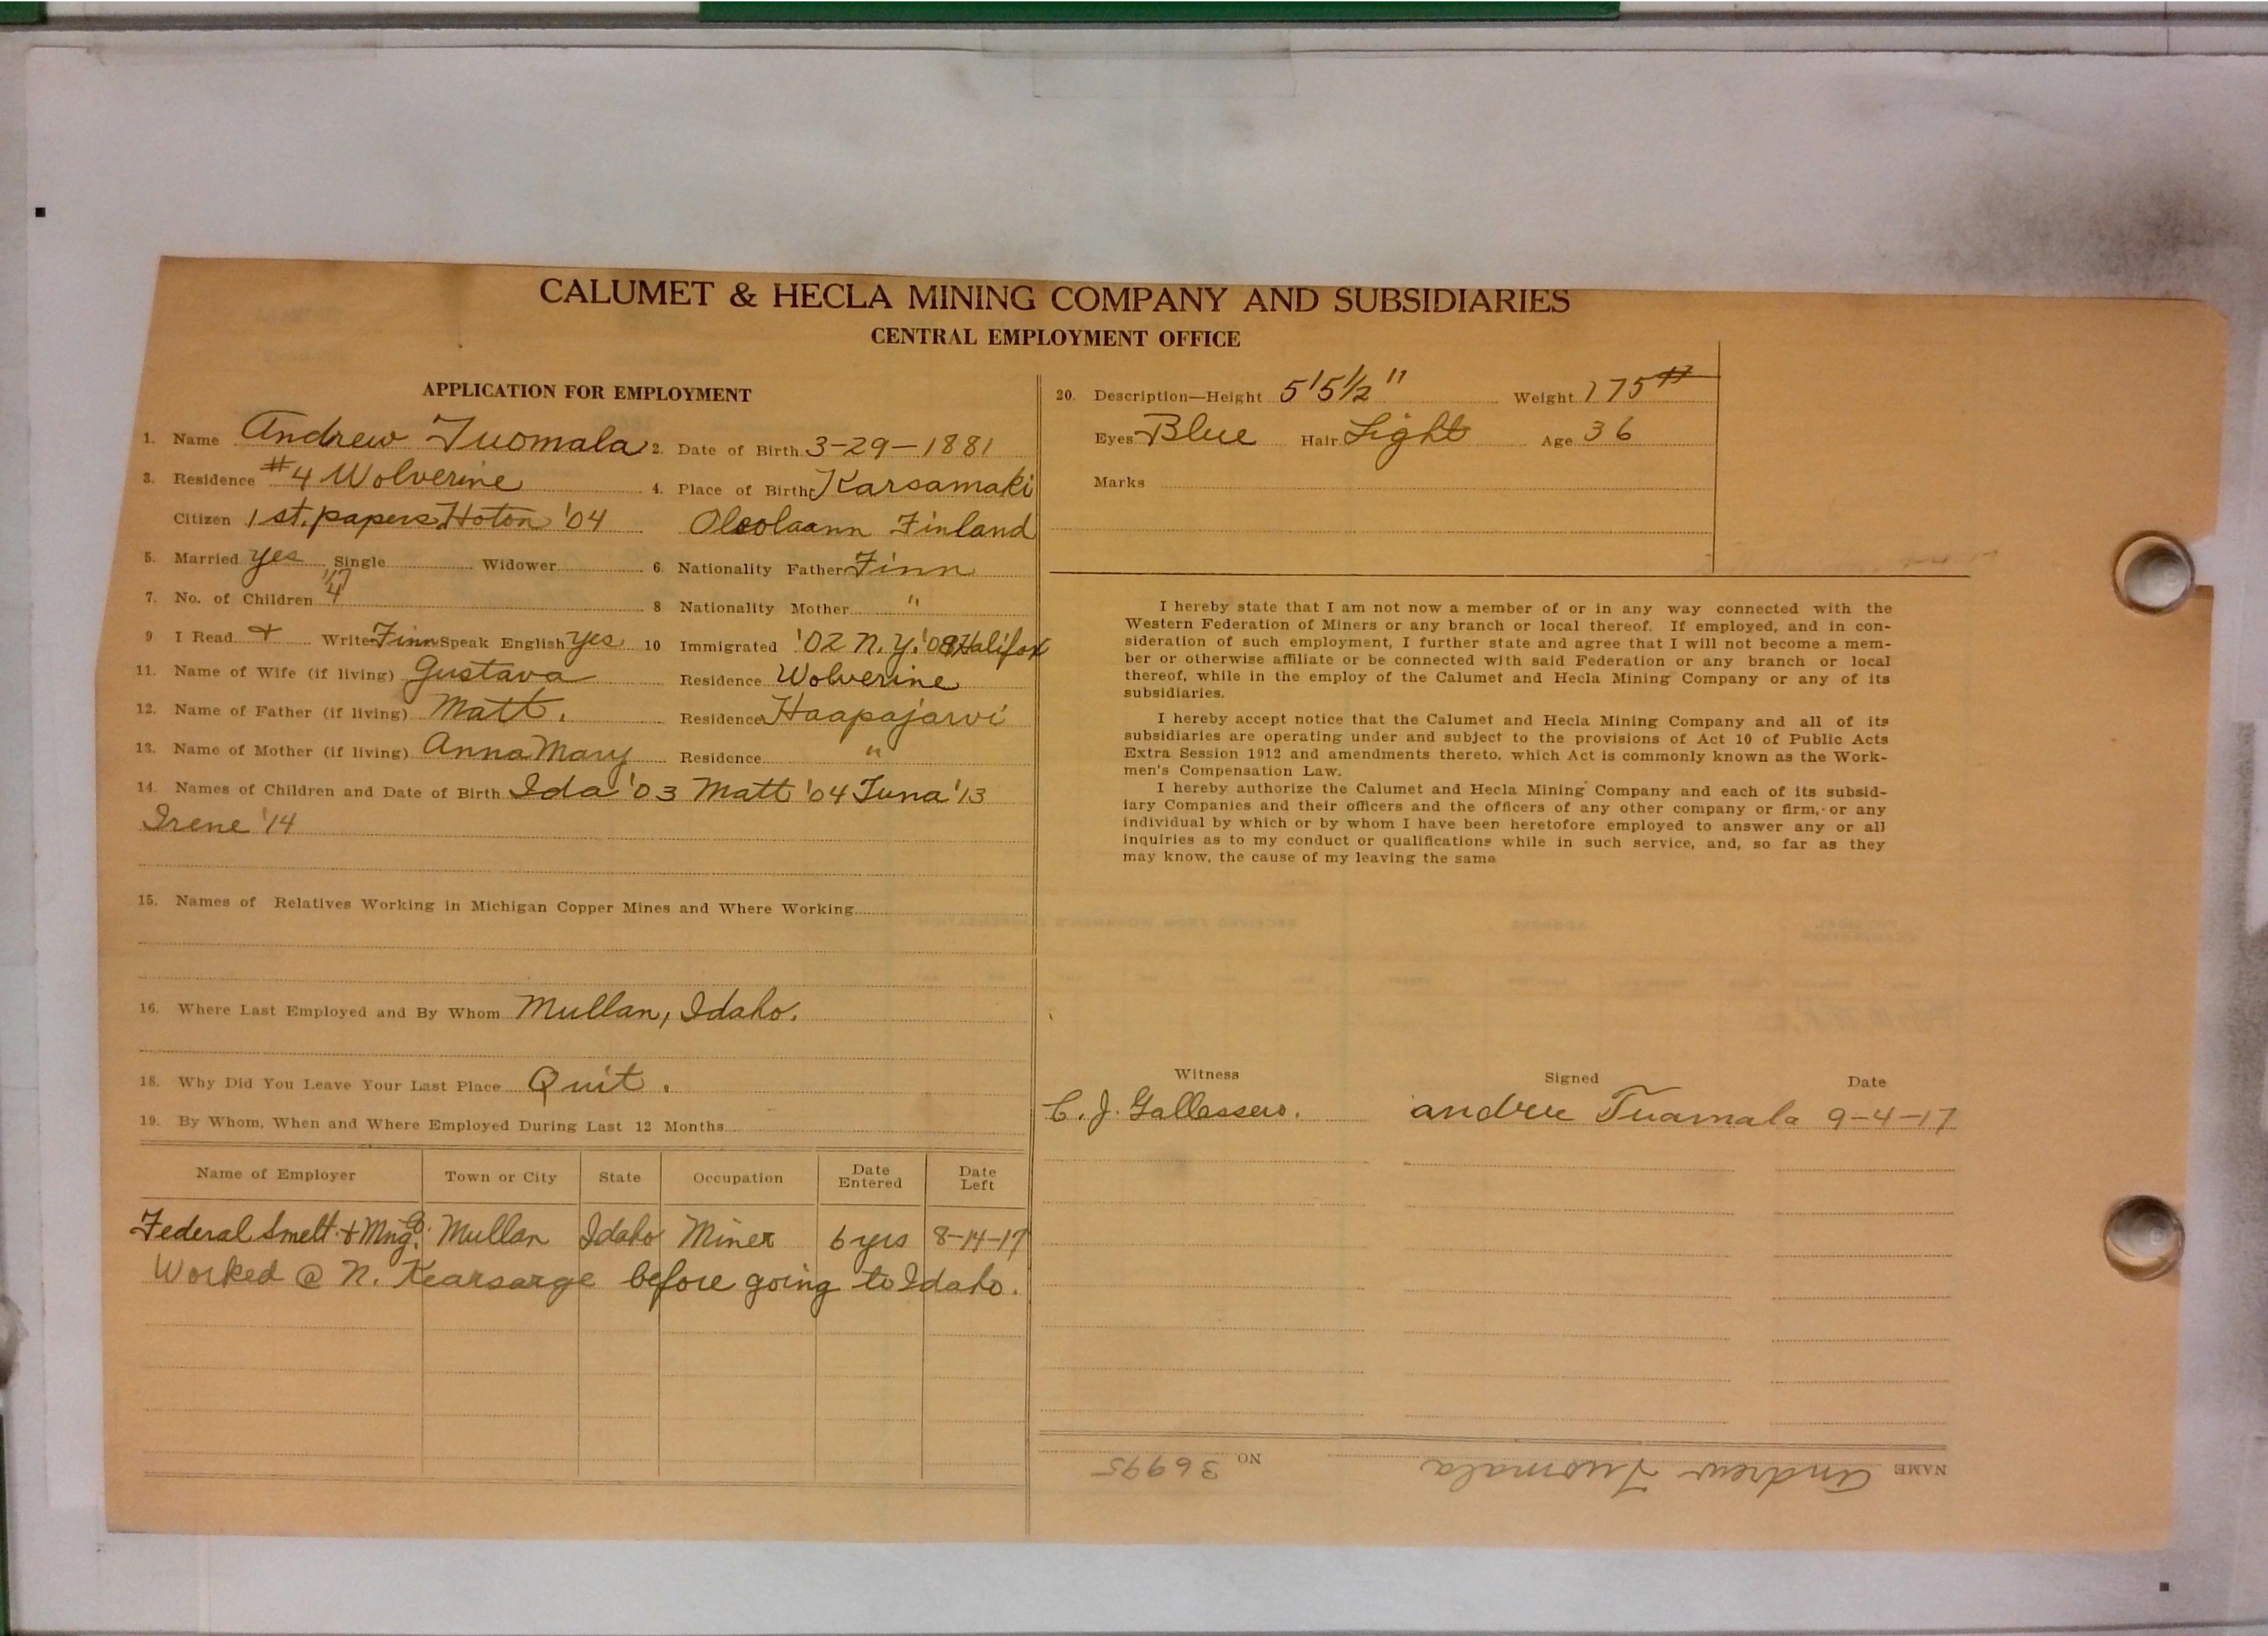 CALUMET & HECLA MINING COMPANY AND SUBSIDIARIES
CENTRAL EMPLOYMENT OFFICE
APPLICATION FOR EMPLOYMENT
1. Name Andrew Tuomala 2. Date of Birth 3-29-1881
3. Residence #4 Wolverine 4. Place of Birth Karsamaki
Citizen 1st. papers Hoton '04 Finland
5. Married yes Single Widower 6. Nationality Father Finn
7. No. of Children 4 8 Nationality Mother "
9 I Read + Write Finn Speak English yes 10 Immigrated '02 N.Y. '08 Halifax
11. Name of Wife (if living) Gustava Residence Wolverine
12. Name of Father (if living) Matt. Residence Haapajarvi
13. Name of Mother (if living) Anna Mary Residence "
14. Names of Children and Date of Birth Ida '03 Matt '04 Tuna '13
Irene '14
15. Names of Relatives Working in Michigan Copper Mines and Where Working
16. Where Last Employed and By Whom Mullan, Idaho.
18. Why Did You Leave Your Last Place Quit.
19. By Whom, When and Where Employed During Last 12 Months
Name of Employer Town or City State Occupation Date Entered Date Left
Federal Smelt. + Mng. Co. Mullan Idaho Miner 6 yrs 8-14-17
Worked @ N. Kearsarge before going to Idaho.
20. Description—Height 5'5½" Weight 175#
Eyes Blue Hair Light Age 36
Marks
I hereby state that I am not now a member of or in any way connected with the
Western Federation of Miners or any branch or local thereof. If employed, and in con-
sideration of such employment, I further state and agree that I will not become a mem-
ber or otherwise affiliate or be connected with said Federation or any branch or local
thereof, while in the employ of the Calumet and Hecla Mining Company or any of its
subsidiaries.
I hereby accept notice that the Calumet and Hecla Mining Company and all of its
subsidiaries are operating under and subject to the provisions of Act 10 of Public Acts
Extra Session 1912 and amendments thereto, which Act is commonly known as the Work-
men's Compensation Law.
I hereby authorize the Calumet and Hecla Mining Company and each of its subsid-
iary Companies and their officers and the officers of any other company or firm, or any
individual by which or by whom I have been heretofore employed to answer any or all
inquiries as to my conduct or qualifications while in such service, and, so far as they
may know, the cause of my leaving the same
Witness Signed Date
C. J. andrew Tuamala 9-4-17
NAME Andrew Tuomala NO 36995